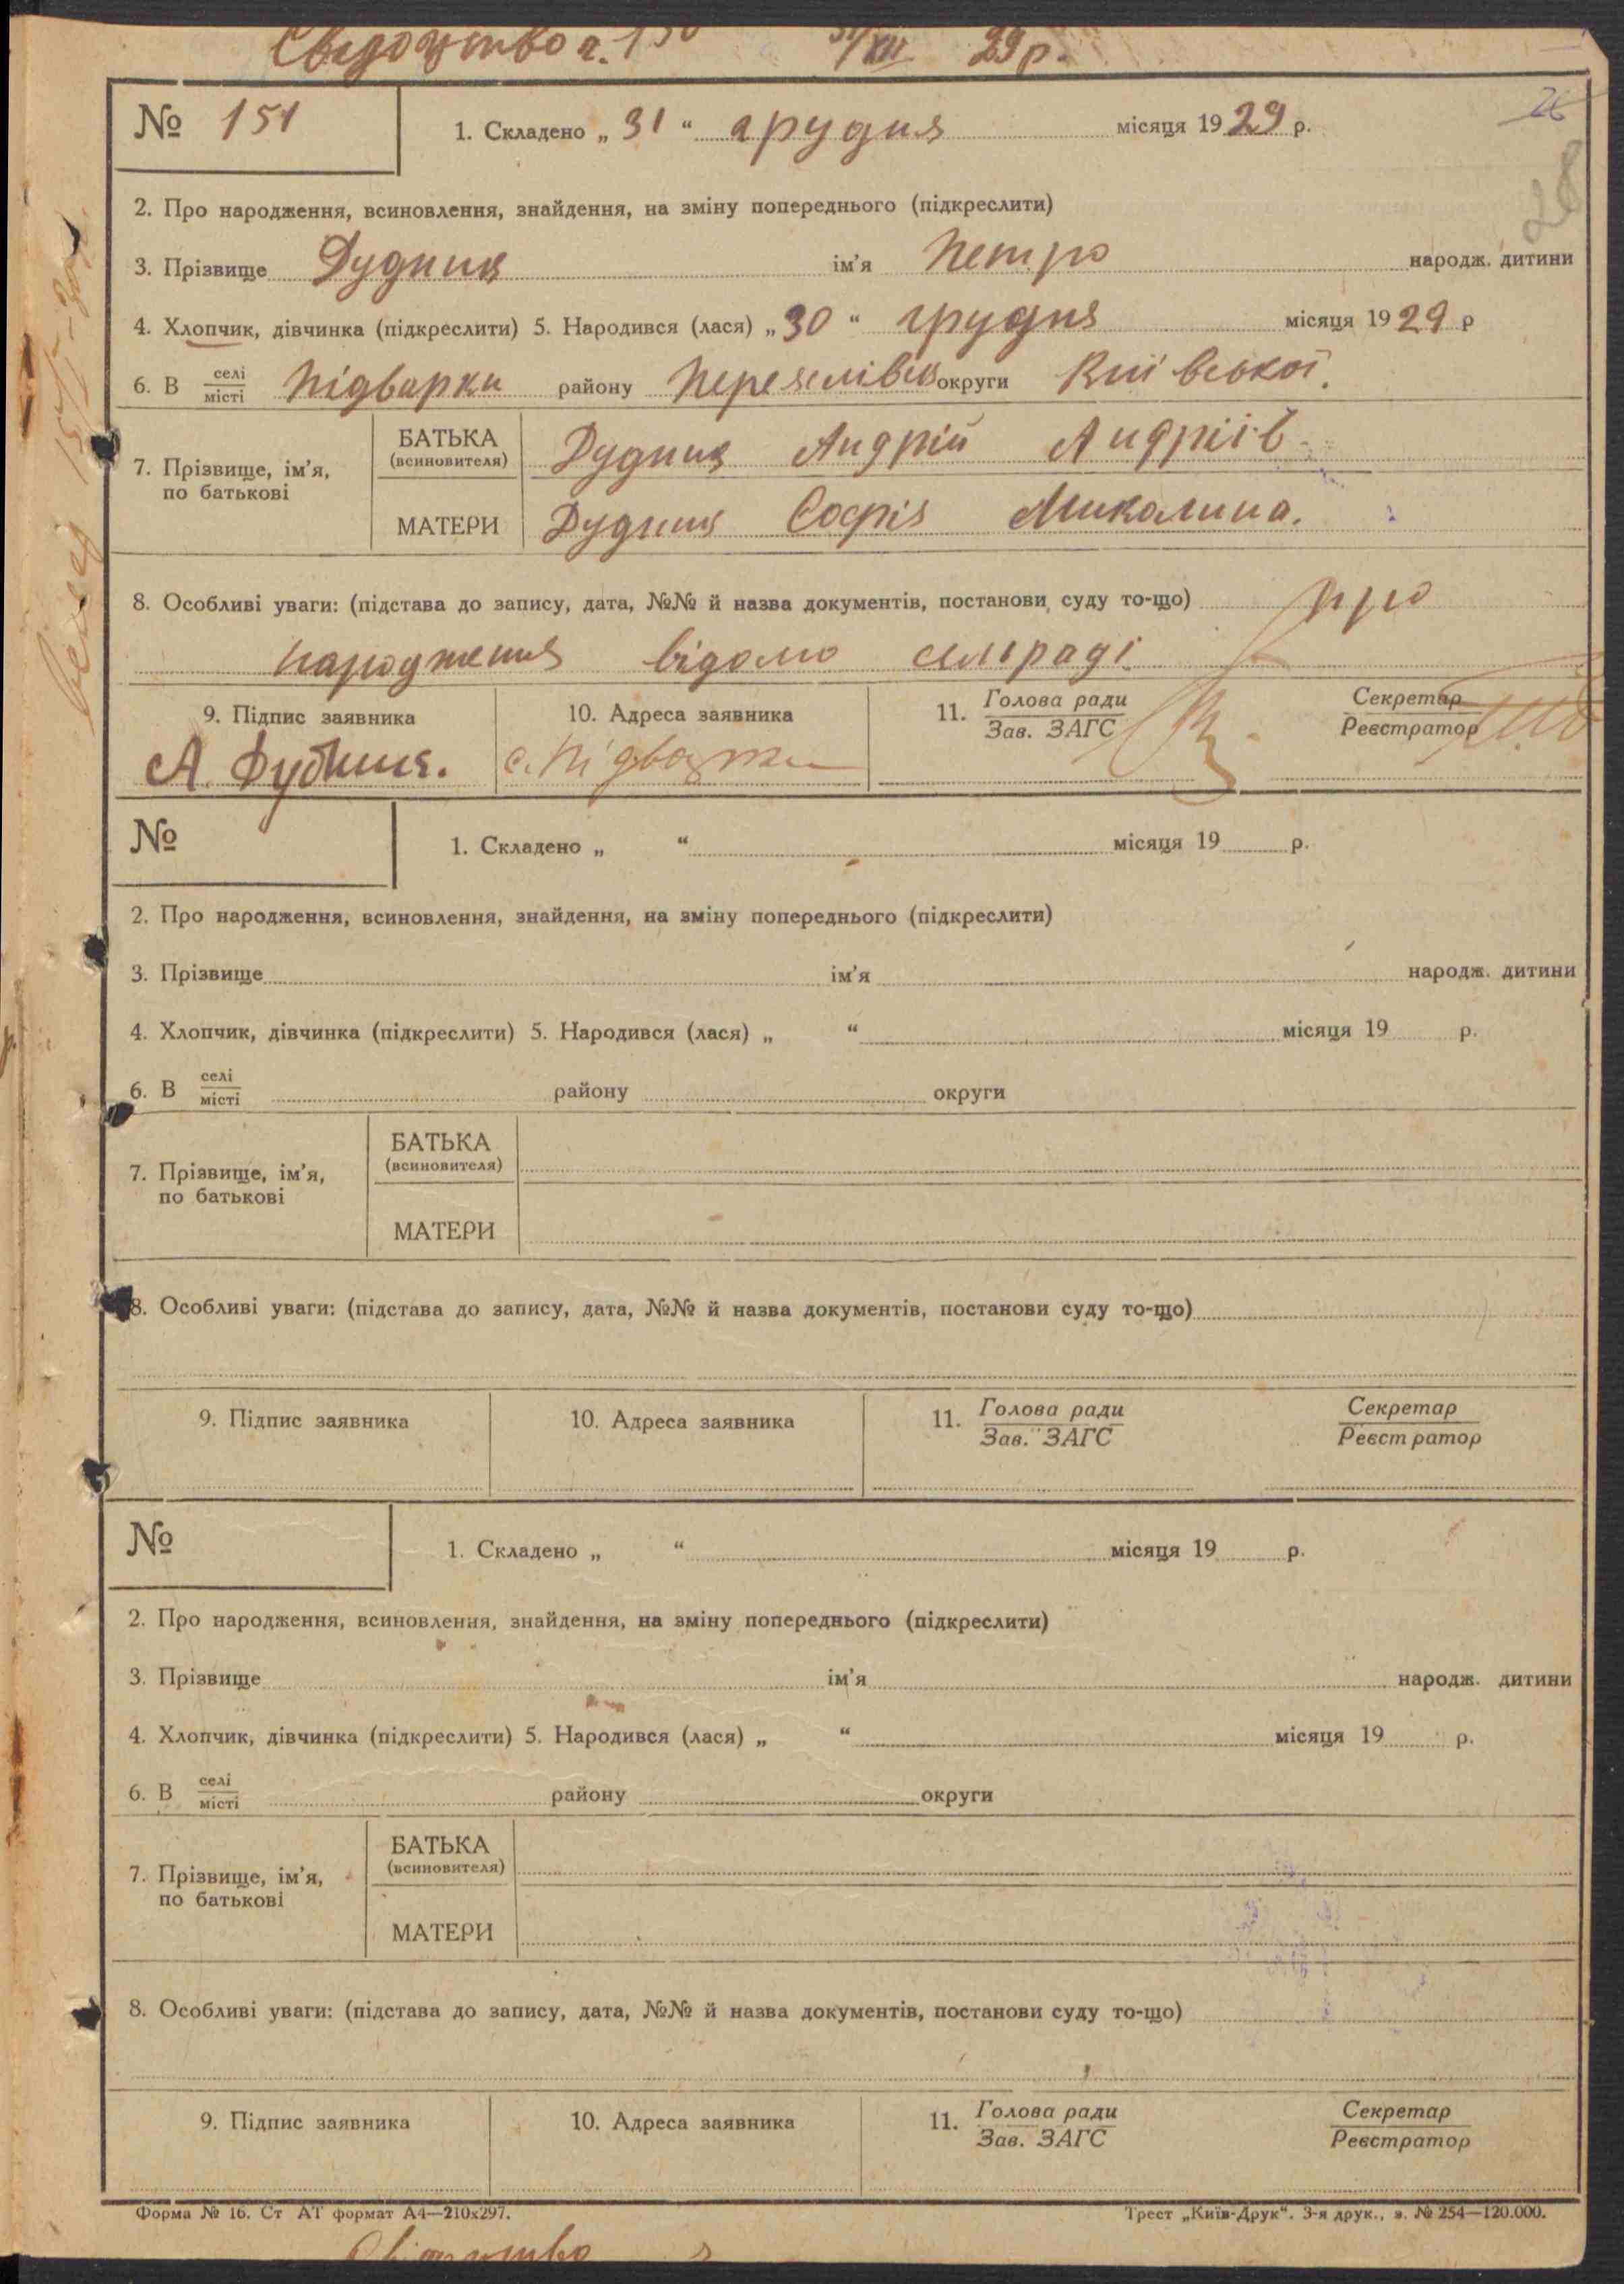 29 р.
№ 151
1. Складено „ 31 “ грудня місяця 19 29 р.
26
28
2. Про народження, всиновлення, знайдення, на зміну попереднього (підкреслити)
3. Прізвище Дудник ім'я Петро народж. дитини
4. Хлопчик, дівчинка (підкреслити) 5. Народився (лася) „ 30 “ грудня місяця 19 29 р
6. В селі місті Підварки району округи Київської.
7. Прізвище, ім'я, по батькові
БАТЬКА (всиновителя) Дудник Андрій Андріїв
МАТЕРИ Дудник Софія Миколина.
8. Особливі уваги: (підстава до запису, дата, №№ й назва документів, постанови суду то-що) про
народження відомо сельраді
9. Підпис заявника 10. Адреса заявника 11. Голова ради Зав. ЗАГС Секретар Реєстратор
А. с. Підварки
№
1. Складено „ “ місяця 19 р.
2. Про народження, всиновлення, знайдення, на зміну попереднього (підкреслити)
3. Прізвище ім'я народж. дитини
4. Хлопчик, дівчинка (підкреслити) 5. Народився (лася) „ “ місяця 19 р.
6. В селі місті району округи
7. Прізвище, ім'я, по батькові
БАТЬКА (всиновителя)
МАТЕРИ
8. Особливі уваги: (підстава до запису, дата, №№ й назва документів, постанови суду то-що)
9. Підпис заявника 10. Адреса заявника 11. Голова ради Зав. ЗАГС Секретар Реєстратор
№
1. Складено „ “ місяця 19 р.
2. Про народження, всиновлення, знайдення, на зміну попереднього (підкреслити)
3. Прізвище ім'я народж. дитини
4. Хлопчик, дівчинка (підкреслити) 5. Народився (лася) „ “ місяця 19 р.
6. В селі місті району округи
7. Прізвище, ім'я, по батькові
БАТЬКА (всиновителя)
МАТЕРИ
8. Особливі уваги: (підстава до запису, дата, №№ й назва документів, постанови суду то-що)
9. Підпис заявника 10. Адреса заявника 11. Голова ради Зав. ЗАГС Секретар Реєстратор
Форма № 16. Ст АТ формат А4—210х297. Трест „Київ-Друк“. 3-я друк., з. № 254—120.000.